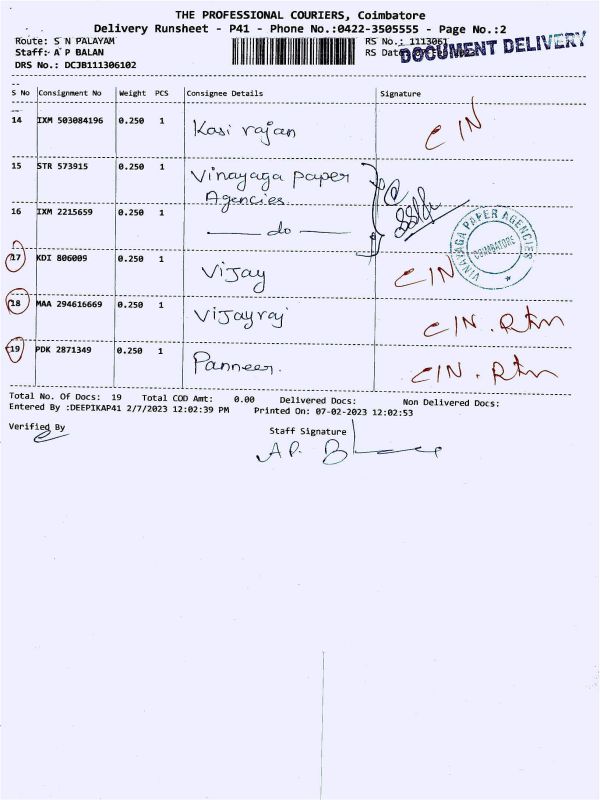 THE PROFESSIONAL COURIERS, Coimbatore
Delivery Runsheet - P41 - Phone No.:0422-3505555 - Page No.:2
Route: S N PALAYAM
Staff: A P BALAN
DRS No.: DCJB111306102
RS No.: 1113061
RS Date
DOCUMENT DELIVERY
S No Consignment No Weight PCS Consignee Details Signature
14 IXM 503084196 0.250 1 Kasi rajan CIN
15 STR 573915 0.250 1 Vinayaga paper
Agencies
16 IXM 2215659 0.250 1 do
VINAYAGA PAPER AGENCIES
COIMBATORE
17 KDI 806009 0.250 1 Vijay CIN
18 MAA 294616669 0.250 1 Vijayraj CIN. Rtn
19 PDK 2871349 0.250 1 Panneer. CIN. Rtn
Total No. Of Docs: 19 Total COD Amt: 0.00 Delivered Docs: Non Delivered Docs:
Entered By :DEEPIKAP41 2/7/2023 12:02:39 PM Printed On: 07-02-2023 12:02:53
Verified By
Staff Signature
A P. B